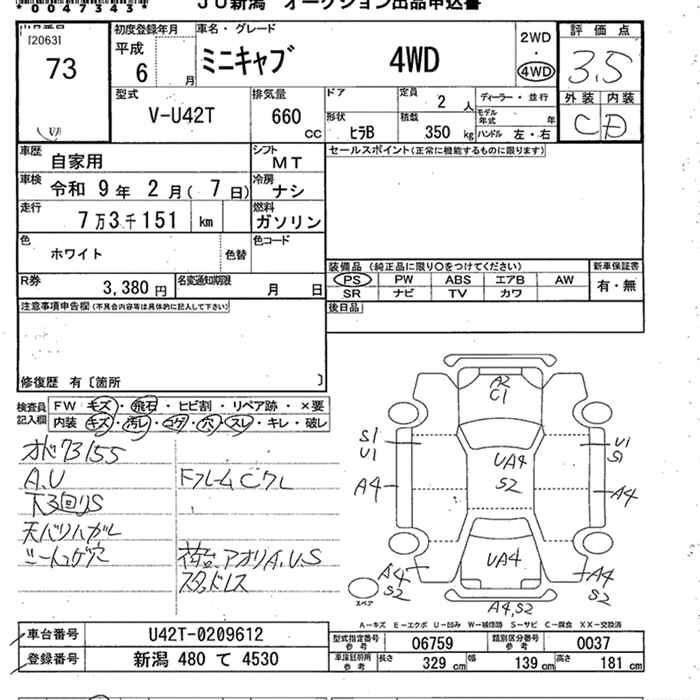 *0047343*
JU新潟 オークション出品申込書
[2063]
73
初度登録年月
平成
6
月
車名・グレード
ミニキャブ 4WD
2WD
・
4WD
評価点
3.5
外装 内装
C D
型式
V-U42T
排気量
660
CC
ドア
形状
ヒラB
定員
2 人
積載
350 kg
ディーラー・並行
モデル年式 年
ハンドル 左・右
車歴
自家用
シフト
MT
車検
令和 9 年 2 月( 7 日)
冷房
ナシ
走行
7 万 3 千 151 km
燃料
ガソリン
色
ホワイト
色替
色コード
R券
3,380 円
名変通知期限
月 日
セールスポイント(正常に機能するものに限ります)
装備品 (純正品に限り〇をつけてください)
PS PW ABS エアB AW
SR ナビ TV カワ
新車保証書
有・無
後日品
注意事項申告欄 (不具合内容等は具体的に記入して下さい)
修復歴 有〔箇所 〕
検査員
記入欄
FW キズ・飛石・ヒビ割・リペア跡・×要
内装 キズ・汚レ・コゲ・穴・スレ・キレ・破レ
オド73155
A.U
下回りS
天バリハガレ
シートコゲ穴
FフレームCクレ
荷台、アオリA.U.S
スタッドレス
A2
C1
S1
U1
UA4
S2
U1
S1
A4
A4
UA4
A4
S2
A4
S2
A4,S2
スペア
A-キズ E-エクボ U-凹み W-補修跡 S-サビ C-腐食 XX-交換済
車台番号
U42T-0209612
登録番号
新潟 480 て 4530
型式指定番号
参考
06759
類別区分番号
参考
0037
車庫証明用
参考
長さ
329 cm
幅
139 cm
高さ
181 cm